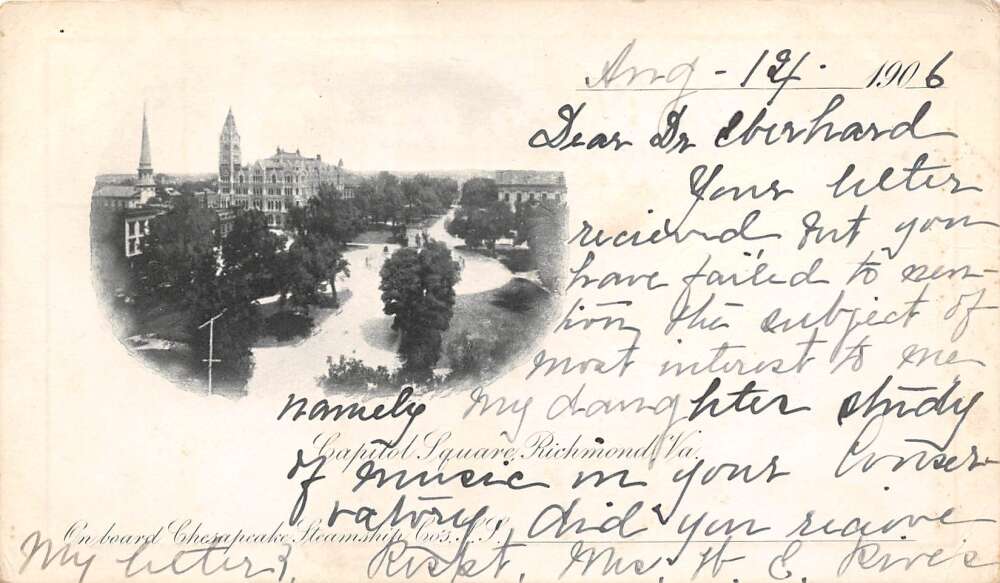 Aug - 14 - 1906
Dear Dr Eberhard
Your letter
recieved, but you
have failed to men-
tion, the subject of
most interest to me,
namely my daughter study
Capitol Square, Richmond, Va.
of music in your Conser-
vatory, did you recieve
On board Chesapeake Steamship Co's. S.S.
My letter?, Respt, Mrs. W. E. Rives